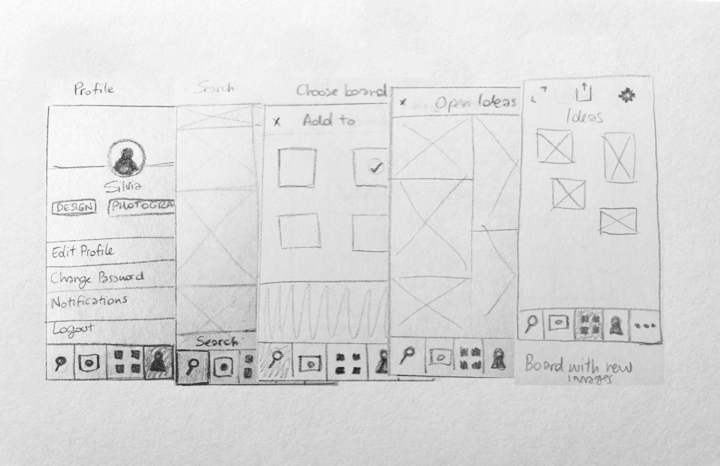 Profile
Silvia
DESIGN
PHOTOGRA
Edit Profile
Change Password
Notifications
Logout
Search
Search
Choose board
x Add to
x Open Ideas
Ideas
Board with new
images